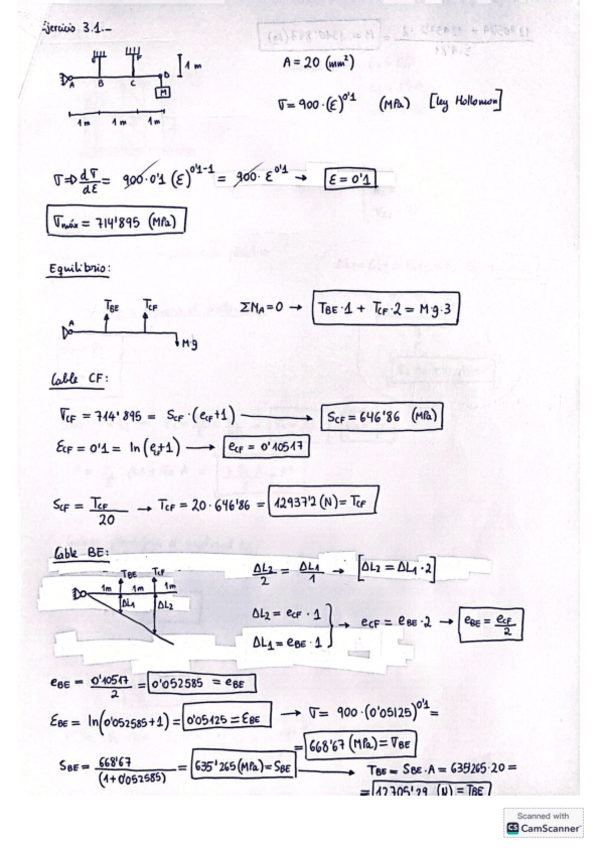 Ejercicio 3.1.-
1m
A = 20 (mm²)
A B C D
M
1m 1m 1m
σ = 900·(ε)^0'1 (MPa) [ley Hollomon]
σ ⇒ dσ/dε = 900·0'1 (ε)^0'1-1 = 900·ε^0'1 → ε = 0'1
σmáx = 714'895 (MPa)
Equilibrio:
A TBE TCF M·g
ΣMA = 0 → TBE·1 + TCF·2 = M·g·3
Cable CF:
σCF = 714'895 = SCF·(eCF+1) → SCF = 646'86 (MPa)
εCF = 0'1 = ln(eCF+1) → eCF = 0'10517
SCF = TCF/20 → TCF = 20·646'86 = 12937'2 (N) = TCF
Cable BE:
TBE TCF
1m 1m 1m
ΔL1 ΔL2
ΔL2/2 = ΔL1/1 → [ΔL2 = ΔL1·2]
ΔL2 = eCF·1
ΔL1 = eBE·1
→ eCF = eBE·2 → eBE = eCF/2
eBE = 0'10517/2 = 0'052585 = eBE
εBE = ln(0'052585+1) = 0'05125 = εBE → σ = 900·(0'05125)^0'1 =
= 668'67 (MPa) = σBE
SBE = 668'67/(1+0'052585) = 635'265 (MPa) = SBE → TBE = SBE·A = 635'265·20 =
= 12705'29 (N) = TBE
Scanned with
CS CamScanner